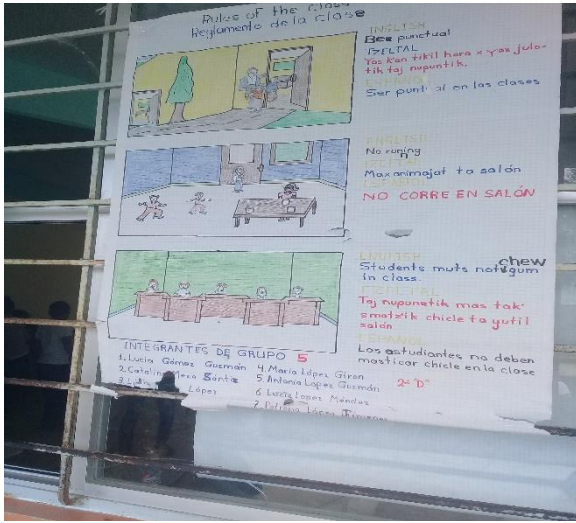 Rules of the Class
Reglamento de la clase
ENGLISH
Bee punctual
TZELTAL
Yas k'an tikil hora
tik taj nupuntik.
ESPAÑOL
Ser puntual en las clases
ENGLISH
No runing
TZELTAL
Max animajat ta salón
ESPAÑOL
NO CORRE EN SALÓN
ENGLISH
Students muts not chew gum
in class.
TZELTAL
Taj nupunetik mas tak'
smats'ik chicle ta yutil
salón
ESPAÑOL
Los estudiantes no deben
masticar chicle en la clase
INTEGRANTES DE GRUPO 5
1. Lucia Gómez Guzmán
2. Catalina Meza Sántiz
3. López
4 Maria López Giron
5 Antonia Lopez Guzmán
6 Lucia Lopez Méndez
7 López
2º "D"